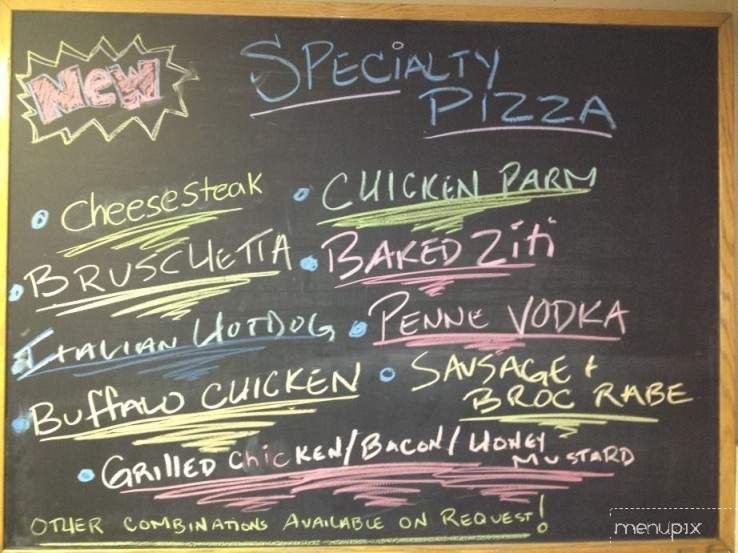 NEW
SPECIALTY
PIZZA
• Cheesesteak
• CHICKEN PARM
• BRUSCHETTA
• BAKED Ziti
• ITALIAN HOTDOG
• PENNE VODKA
• BUFFALO CHICKEN
• SAUSAGE +
BROC RABE
• GRILLED ChicKEN/BACON/HONEY
MUSTARD
OTHER COMBINATIONS AVAILABLE ON REQUEST!
menupix